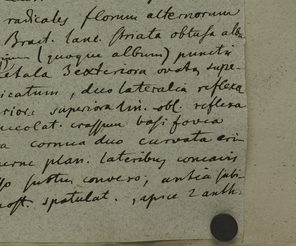 radicales florum alternorum
Bract. lanc. striata obtusa alba
(quoque album) puncti
petala 3 exteriora ovata, supe-
icatum, duo lateralia reflexa
superiora lin. obl. reflexa
crassum basi fovea
cornua duo curvata
plan. lateribus concavis
convexo, antica
spatulat., apice 2 anth.